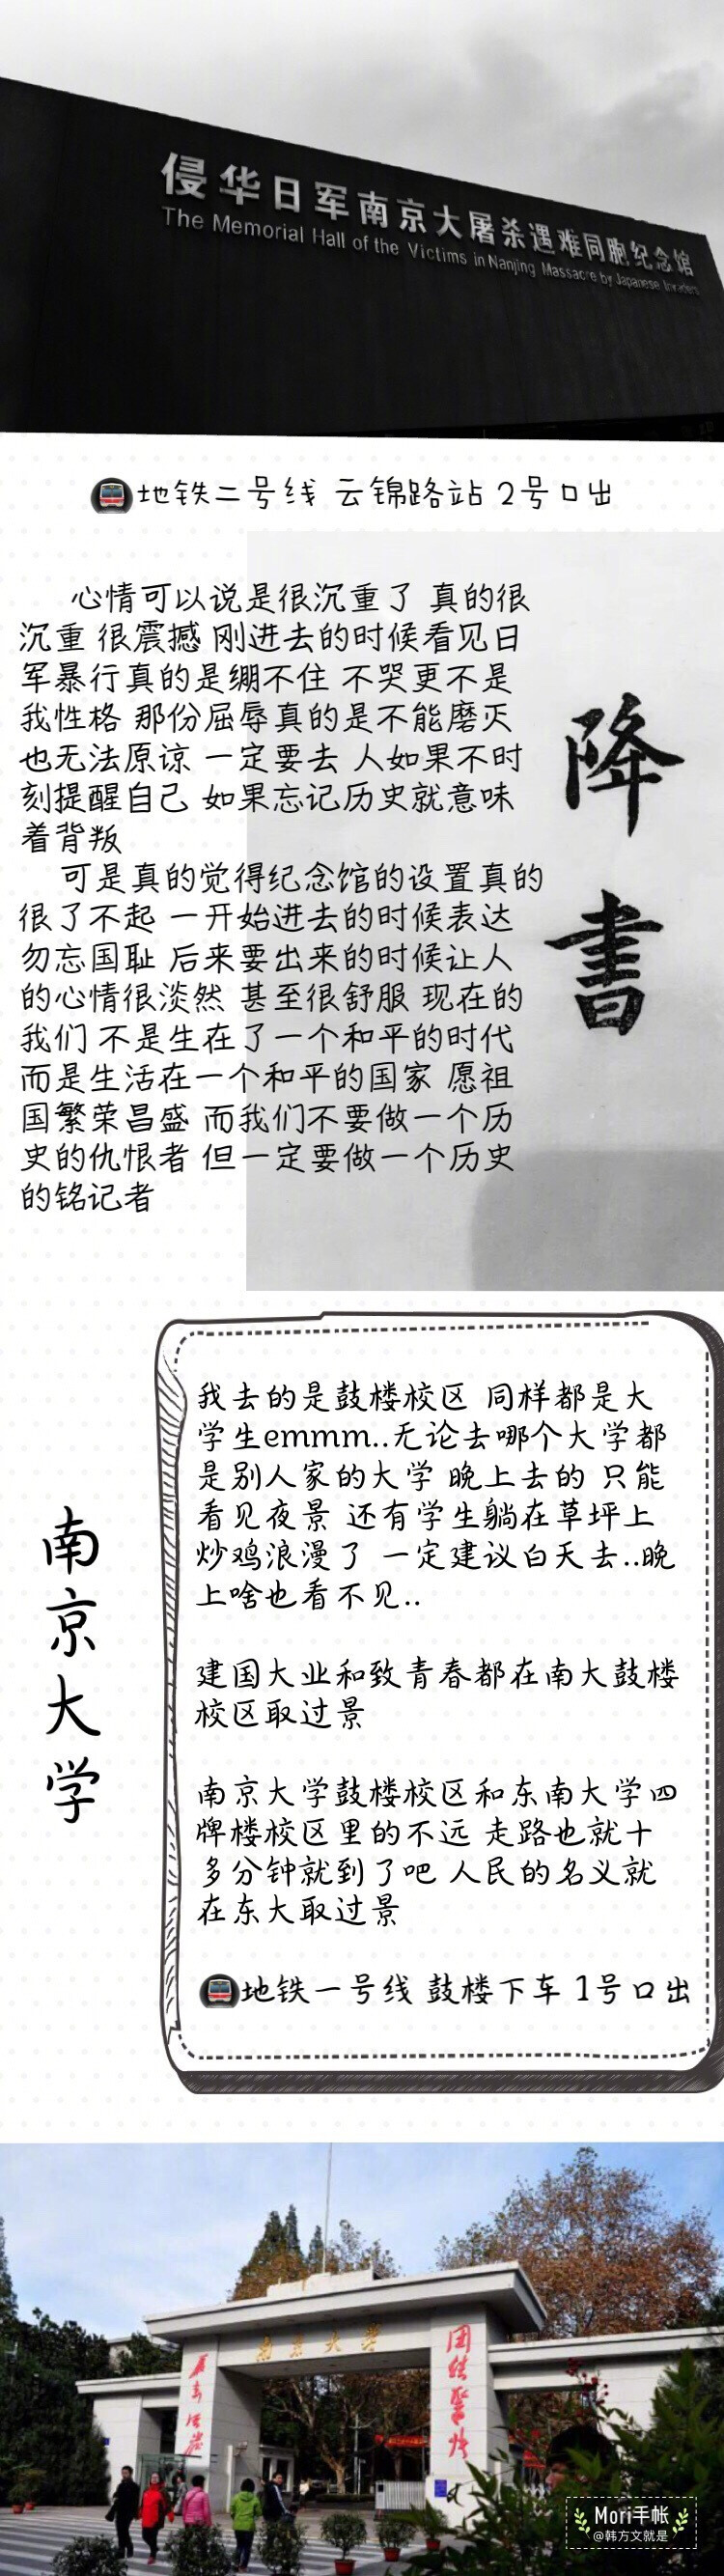 侵华日军南京大屠杀遇难同胞纪念馆
The Memorial Hall of the Victims in Nanjing Massacre by Japanese Invaders
地铁二号线 云锦路站 2号口出
心情可以说是很沉重了 真的很
沉重 很震撼 刚进去的时候看见日
军暴行真的是绷不住 不哭更不是
我性格 那份屈辱真的是不能磨灭
也无法原谅 一定要去 人如果不时
刻提醒自己 如果忘记历史就意味
着背叛
可是真的觉得纪念馆的设置真的
很了不起 一开始进去的时候表达
勿忘国耻 后来要出来的时候让人
的心情很淡然 甚至很舒服 现在的
我们 不是生在了一个和平的时代
而是生活在一个和平的国家 愿祖
国繁荣昌盛 而我们不要做一个历
史的仇恨者 但一定要做一个历史
的铭记者
降書
南京大学
我去的是鼓楼校区 同样都是大
学生emmm..无论去哪个大学都
是别人家的大学 晚上去的 只能
看见夜景 还有学生躺在草坪上
炒鸡浪漫了 一定建议白天去..晚
上啥也看不见..
建国大业和致青春都在南大鼓楼
校区取过景
南京大学鼓楼校区和东南大学四
牌楼校区里的不远 走路也就十
多分钟就到了吧 人民的名义就
在东大取过景
地铁一号线 鼓楼下车 1号口出
南京大学
严肃活泼
团结紧张
Mori手帐
@韩方文就是